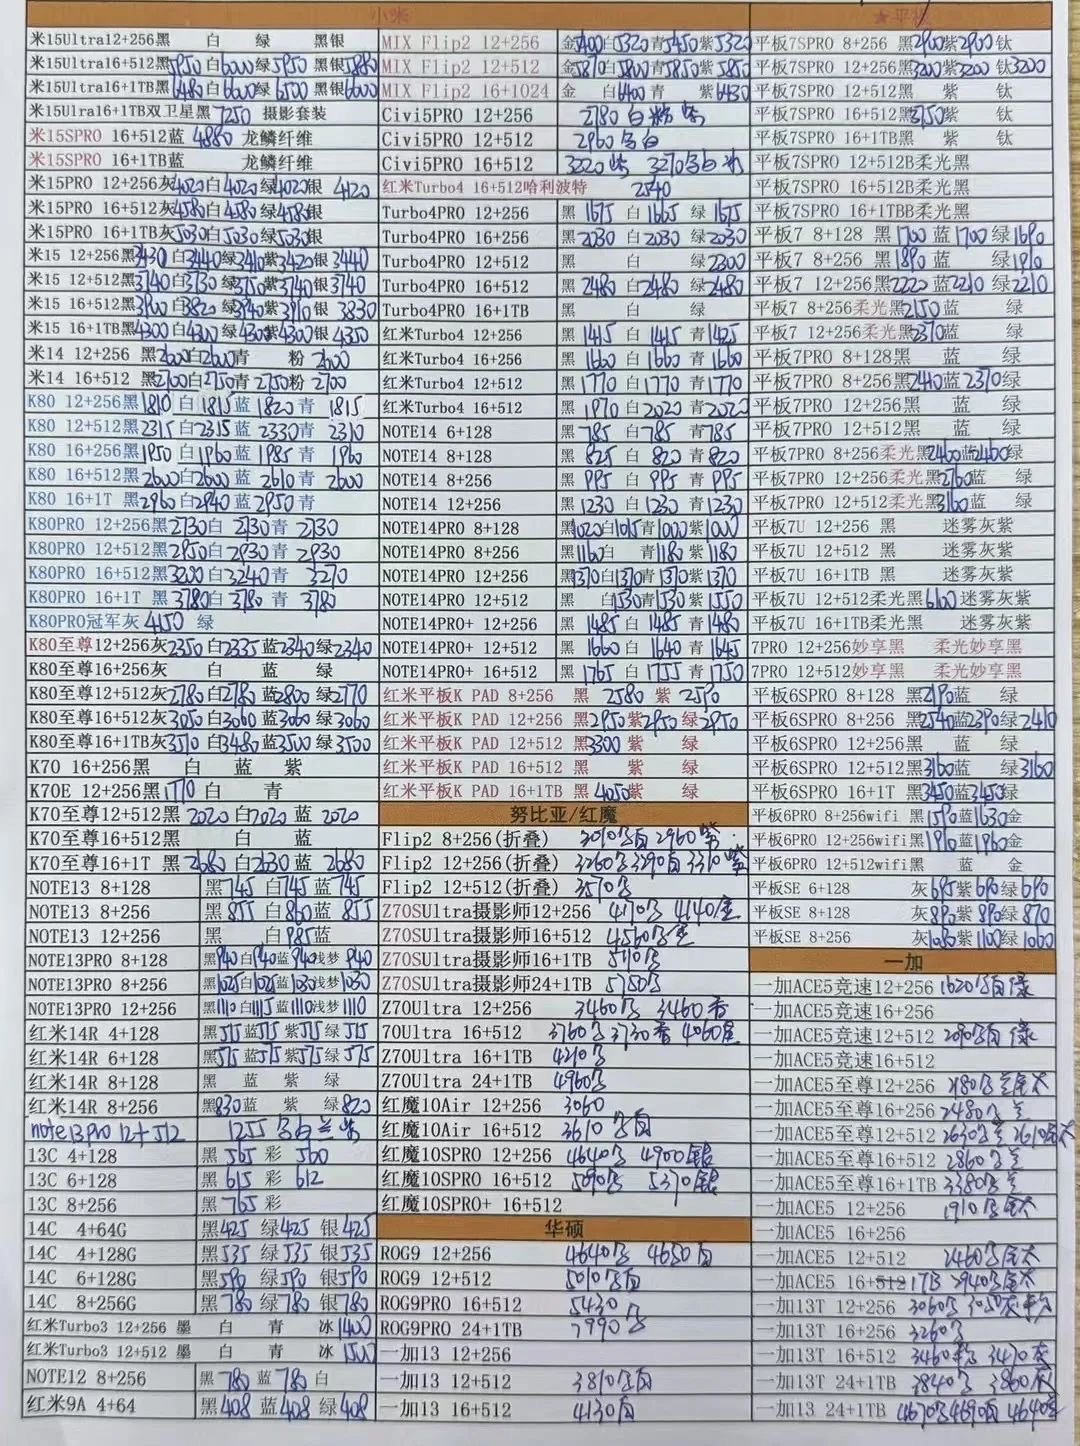 小米
米15Ultra12+256黑 白 绿 黑银
米15Ultra16+512黑5950 白6000 绿5950 黑银5880
米15Ultra16+1TB黑6480 白6600 绿6500 黑银6600
米15Ultra16+1TB双卫星黑 7250 摄影套装
米15SPRO 16+512蓝 4880 龙鳞纤维
米15SPRO 16+1TB蓝 龙鳞纤维
米15PRO 12+256灰4020白4020绿4020银 4120
米15PRO 16+512灰4580白4580绿4580银
米15PRO 16+1TB灰5030白5030绿5030银
米15 12+256黑3430 白3440绿3410紫3420银 3440
米15 12+512黑3740 白3730 绿3750紫3740银 3740
米15 16+512黑3900 白3820 绿3940紫3910银 3830
米15 16+1TB黑4300 白4300 绿4300紫4300银 4350
米14 12+256 黑2600白2600青 粉 2600
米14 16+512 黑2700白2750青 2750粉 2700
K80 12+256黑1810 白1815 蓝 1820 青 1815
K80 12+512黑2315 白2315 蓝 2330青 2310
K80 16+256黑1950 白1960 蓝 1985 青 1960
K80 16+512黑2600白2600 蓝 2610 青 2600
K80 16+1T 黑2960白2940 蓝2950青
K80PRO 12+256黑2730白 2730青 2730
K80PRO 12+512黑2950白2930青 2930
K80PRO 16+512黑3200白3240青 3270
K80PRO 16+1T 黑3780白3780 青 3780
K80PRO冠军灰 4150 绿
K80至尊12+256灰2350 白2335蓝2340绿2340
K80至尊16+256灰 白 蓝 绿
K80至尊12+512灰2780白2780 蓝2800绿2770
K80至尊16+512灰3050白3060 蓝3060绿3060
K80至尊16+1TB灰3510 白3480蓝3500绿3500
K70 16+256黑 白 蓝 紫
K70E 12+256黑1770 白 青
K70至尊12+512黑 2020 白2020 蓝 2020
K70至尊16+512黑 白 蓝
K70至尊16+1T 黑 2680白2630 蓝 2680
NOTE13 8+128 黑745 白745蓝 745
NOTE13 8+256 黑855 白860蓝 855
NOTE13 12+256 黑 白985蓝
NOTE13PRO 8+128 黑940白940蓝940浅梦 940
NOTE13PRO 8+256 黑1025白1025蓝1030浅梦1030
NOTE13PRO 12+256 黑1110白1115蓝1110浅梦 1110
红米14R 4+128 黑515 蓝515 紫515绿515
红米14R 6+128 黑575 蓝575紫575绿575
红米14R 8+128 黑 蓝 紫 绿
红米14R 8+256 黑830蓝 紫 绿820
note13pro 12+512 1255 白兰紫
13C 4+128 黑 565 彩 560
13C 6+128 黑 615 彩 612
13C 8+256 黑 765彩
14C 4+64G 黑425 绿425 银425
14C 4+128G 黑535 绿535 银535
14C 6+128G 黑590 绿590 银590
14C 8+256G 黑780 绿780 银780
红米Turbo3 12+256 墨 白 青 冰1400
红米Turbo3 12+512 墨 白 青 冰1500
NOTE12 8+256 黑780 蓝780 白
红米9A 4+64 黑408 蓝408 绿408
MIX Flip2 12+256 金5400白5320青5450紫5320
MIX Flip2 12+512 金5870白5800青5850紫5850
MIX Flip2 16+1024 金 白6400 青 紫6430
Civi5PRO 12+256 2780 白粉紫
Civi5PRO 12+512 2960 白
Civi5PRO 16+512 3220 紫 3270
红米Turbo4 16+512哈利波特 2540
Turbo4PRO 12+256 黑 1675 白1665 绿1675
Turbo4PRO 16+256 黑2030 白2030 绿2030
Turbo4PRO 12+512 黑 白 绿2300
Turbo4PRO 16+512 黑2480 白2480绿2480
Turbo4PRO 16+1TB 黑 白 绿
红米Turbo4 12+256 黑1415 白1415 青1425
红米Turbo4 16+256 黑1660 白1660 青1660
红米Turbo4 12+512 黑1770 白1770 青1770
红米Turbo4 16+512 黑1970 白2020 青2020
NOTE14 6+128 黑785 白785 青785
NOTE14 8+128 黑825 白820青820
NOTE14 8+256 黑995 白995 青995
NOTE14 12+256 黑1230 白1230青1230
NOTE14PRO 8+128 黑1020白1015青1000紫1000
NOTE14PRO 8+256 黑1160白 青1180紫1180
NOTE14PRO 12+256 黑1370白1370青1370紫1370
NOTE14PRO 12+512 黑 白1530青1530紫1550
NOTE14PRO+ 12+256 黑1485 白1485 青1480
NOTE14PRO+ 12+512 黑1660 白1640青1645
NOTE14PRO+ 16+512 黑1765 白1755青1750
红米平板K PAD 8+256 黑 2580 紫 2590
红米平板K PAD 12+256 黑2950紫2950 绿2950
红米平板K PAD 12+512 黑3300 紫 绿
红米平板K PAD 16+512 黑 紫 绿
红米平板K PAD 16+1TB 黑4050紫 绿
努比亚/红魔
Flip2 8+256(折叠) 3010 2960紫
Flip2 12+256(折叠) 3260 3290白3310紫
Flip2 12+512(折叠) 3570
Z70SUltra摄影师12+256 4170 4140
Z70SUltra摄影师16+512 4560
Z70SUltra摄影师16+1TB 5110
Z70SUltra摄影师24+1TB 5750
Z70Ultra 12+256 3460 3460
70Ultra 16+512 3760 3730 4060
Z70Ultra 16+1TB 4210
Z70Ultra 24+1TB 4960
红魔10Air 12+256 3060
红魔10Air 16+512 3610 白
红魔10SPRO 12+256 4640 4900银
红魔10SPRO 16+512 5090 5370银
红魔10SPRO+ 16+512
华硕
ROG9 12+256 4640 4650白
ROG9 12+512 5010 白
ROG9PRO 16+512 5430
ROG9PRO 24+1TB 7990
一加13 12+256
一加13 12+512 3810 白
一加13 16+512 4130白
★平板
平板7SPRO 8+256 黑2900紫2900钛
平板7SPRO 12+256黑3200紫3200 钛3200
平板7SPRO 12+512黑 紫 钛
平板7SPRO 16+512黑3750紫 钛
平板7SPRO 16+1TB黑 紫 钛
平板7SPRO 12+512B柔光黑
平板7SPRO 16+512B柔光黑
平板7SPRO 16+1TBB柔光黑
平板7 8+128 黑1700 蓝1700 绿1690
平板7 8+256 黑1890 蓝 绿1910
平板7 12+256黑2220蓝2210 绿2210
平板7 8+256柔光黑2150蓝 绿
平板7 12+256柔光黑2370蓝 绿
平板7PRO 8+128黑 蓝 绿
平板7PRO 8+256黑2410蓝2370绿
平板7PRO 12+256黑 蓝 绿
平板7PRO 12+512黑 蓝 绿
平板7PRO 8+256柔光黑2460蓝2460绿
平板7PRO 12+256柔光黑2760蓝 绿
平板7PRO 12+512柔光黑3160蓝 绿
平板7U 12+256 黑 迷雾灰紫
平板7U 12+512 黑 迷雾灰紫
平板7U 16+1TB 黑 迷雾灰紫
平板7U 12+512柔光黑6100 迷雾灰紫
平板7U 16+1TB柔光黑 迷雾灰紫
7PRO 12+256妙享黑 柔光妙享黑
7PRO 12+512妙享黑 柔光妙享黑
平板6SPRO 8+128 黑2190蓝 绿
平板6SPRO 8+256 黑2540蓝2390绿2410
平板6SPRO 12+256黑 蓝 绿
平板6SPRO 12+512黑3160蓝 绿3160
平板6SPRO 16+1T 黑3450蓝3450绿
平板6PRO 8+256wifi 黑1590蓝1630金
平板6PRO 12+256wifi黑1910蓝1960金
平板6PRO 12+512wifi黑 蓝 金
平板SE 6+128 灰695紫690绿690
平板SE 8+128 灰890紫890绿870
平板SE 8+256 灰1080紫1100绿1060
一加
一加ACE5竞速12+256 1620 白绿
一加ACE5竞速16+256
一加ACE5竞速12+512 2090 白绿
一加ACE5竞速16+512
一加ACE5至尊12+256 2180
一加ACE5至尊16+256 2480
一加ACE5至尊12+512 2630 2610
一加ACE5至尊16+512 2860
一加ACE5至尊16+1TB 3380
一加ACE5 12+256 1910
一加ACE5 16+256
一加ACE5 12+512 2460
一加ACE5 16+512 1TB 2940
一加13T 12+256 3060 3050
一加13T 16+256 3260
一加13T 16+512 3460 3470
一加13T 24+1TB 3840 3860
一加13 24+1TB 4670 4690白 4640